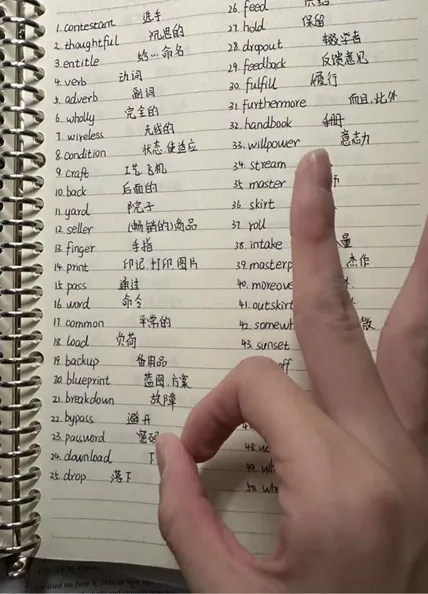 1. contestant 选手
2. thoughtful 沉思的
3. entitle 给…命名
4. verb 动词
5. adverb 副词
6. wholly 完全的
7. wireless 无线的
8. condition 状态,使适应
9. craft 工艺,飞机
10. back 后面的
11. yard 院子
12. seller (畅销的)商品
13. finger 手指
14. print 印记,打印,图片
15. pass 通过
16. word 命令
17. common 平常的
18. load 负荷
19. backup 备用品
20. blueprint 蓝图,方案
21. breakdown 故障
22. bypass 避开
23. password 密码
24. download 下
25. drop 落下
26. feed
27. hold 保留
28. dropout 辍学者
29. feedback 反馈意见
30. fulfill 履行
31. furthermore 而且,此外
32. handbook 手册
33. willpower 意志力
34. stream
35. master 师
36. skirt
37. roll
38. intake 量
39. masterp 杰作
40. moreove
41. outskirt
42. somewh 微
43. sunset
off
48.
49. wh
50. whe